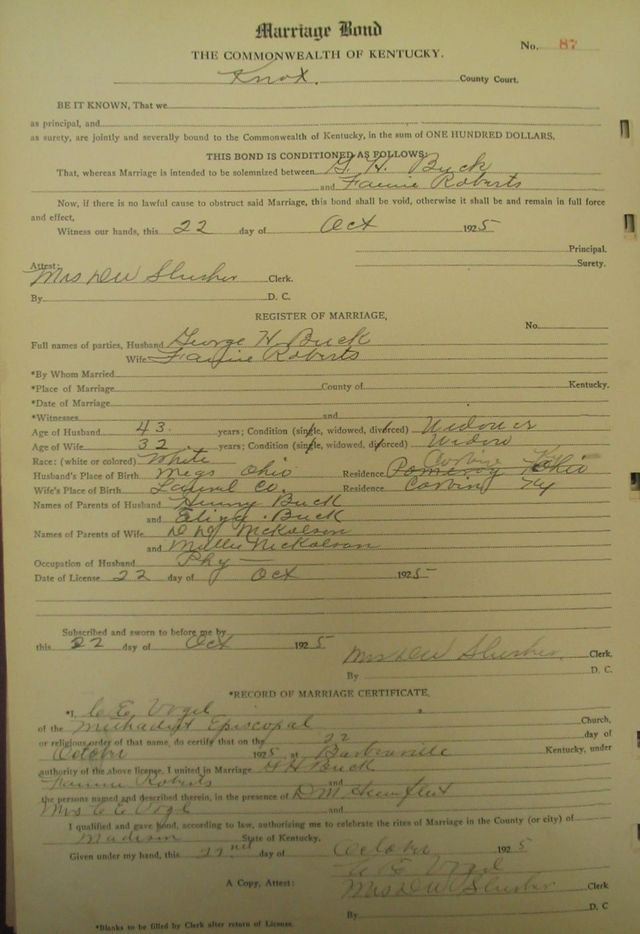 Marriage Bond
THE COMMONWEALTH OF KENTUCKY.
No. 87
Knox County Court.
BE IT KNOWN, That we
as principal, and
as surety, are jointly and severally bound to the Commonwealth of Kentucky, in the sum of ONE HUNDRED DOLLARS.
THIS BOND IS CONDITIONED AS FOLLOWS:
That, whereas Marriage is intended to be solemnized between G. H. Buck
and Fannie Roberts
Now, if there is no lawful cause to obstruct said Marriage, this bond shall be void, otherwise it shall be and remain in full force
and effect,
Witness our hands, this 22 day of Oct 1925
Principal.
Surety.
Attest:
Mrs D W Slusher Clerk.
By D. C.
REGISTER OF MARRIAGE,
No.
Full names of parties, Husband George H Buck
Wife Fannie Roberts
*By Whom Married
*Place of Marriage County of Kentucky.
*Date of Marriage
*Witnesses and
Age of Husband 43 years; Condition (single, widowed, divorced) Widower
Age of Wife 32 years; Condition (single, widowed, divorced) Widow
Race: (white or colored) White Corbin Ky
Husband's Place of Birth Megs Ohio Residence Pomeroy Ohio
Wife's Place of Birth Laurel Co. Residence Corbin Ky
Names of Parents of Husband Henry Buck
and Eliza Buck
Names of Parents of Wife Nickolson
and Mollie Nickolson
Occupation of Husband Phy
Date of License 22 day of Oct 1925
Subscribed and sworn to before me by
this 22 day of Oct 1925
Mrs D W Slusher Clerk.
By D. C.
*RECORD OF MARRIAGE CERTIFICATE.
*I, C E Vogel
of the Methodist Episcopal Church,
or religious order of that name, do certify that on the 22 day of
October 1925, at Barbourville Kentucky, under
authority of the above license, I united in Marriage G H Buck
Fannie Roberts and
the persons named and described therein, in the presence of D. M.
Mrs C E Vogel and
I qualified and gave bond, according to law, authorizing me to celebrate the rites of Marriage in the County (or city) of
Madison State of Kentucky.
Given under my hand, this 22nd day of October 1925
C E Vogel
A Copy, Attest: Mrs D W Slusher Clerk
By D. C
*Blanks to be filled by Clerk after return of License.